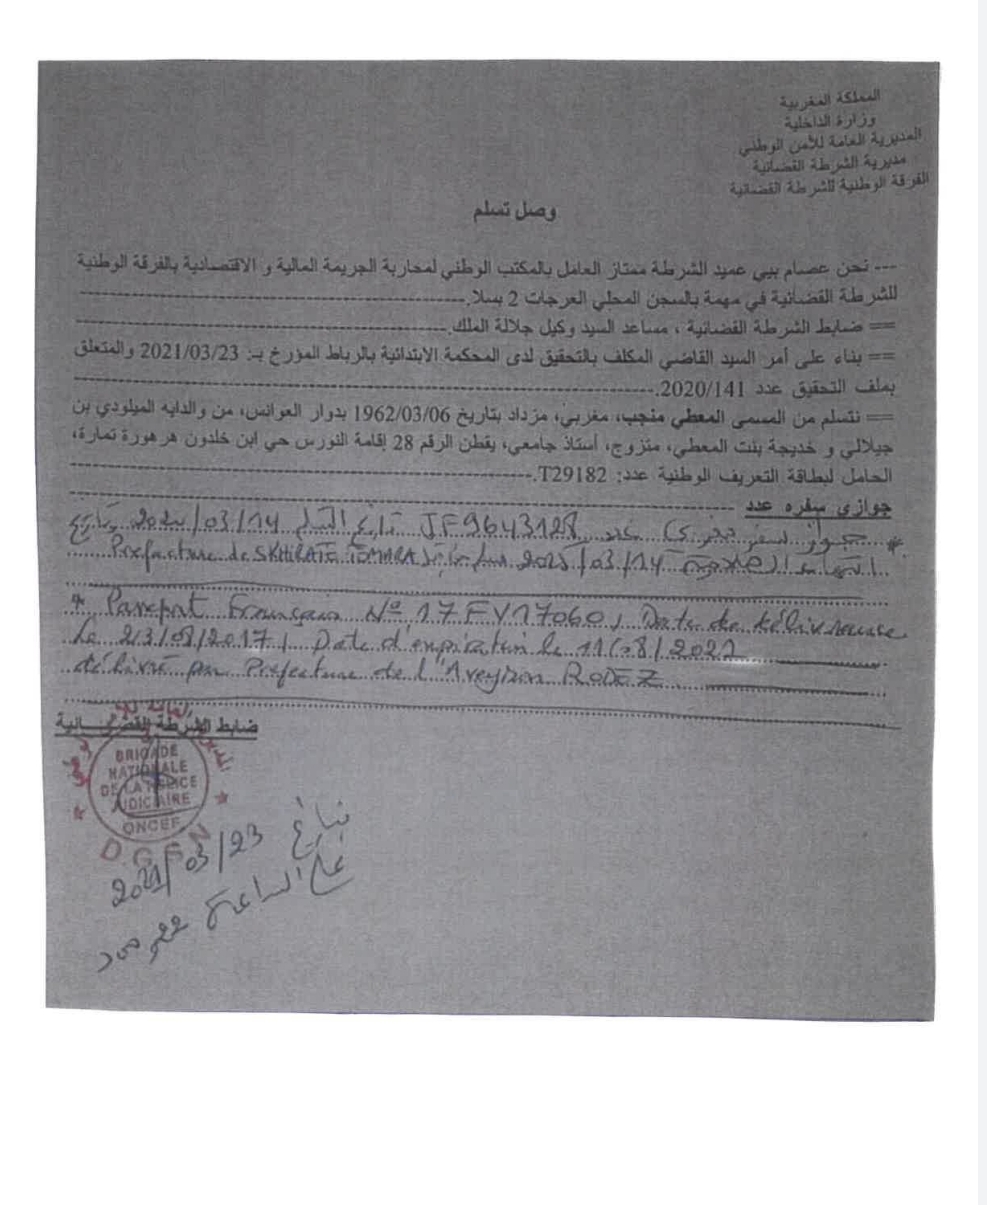 المملكة المغربية
وزارة الداخلية
المديرية العامة للأمن الوطني
مديرية الشرطة القضائية
الفرقة الوطنية للشرطة القضائية
وصل تسلم
--- نحن عصام بيي عميد الشرطة ممتاز العامل بالمكتب الوطني لمحاربة الجريمة المالية و الاقتصادية بالفرقة الوطنية
للشرطة القضائية في مهمة بالسجن المحلي العرجات 2 بسلا.
== ضابط الشرطة القضائية ، مساعد السيد وكيل جلالة الملك.
== بناء على أمر السيد القاضي المكلف بالتحقيق لدى المحكمة الابتدائية بالرباط المؤرخ بـ: 2021/03/23 والمتعلق
بملف التحقيق عدد 2020/141.
== نتسلم من المسمى المعطي منجب، مغربي، مزداد بتاريخ 1962/03/06 بدوار العوانس، من والدايه الميلودي بن
جيلالي و خديجة بنت المعطي، متزوج، أستاذ جامعي، يقطن الرقم 28 إقامة النورس حي ابن خلدون هرهورة تمارة،
الحامل لبطاقة التعريف الوطنية عدد: T29182.
جوازي سفره عدد
* جواز سفر مغربي عدد JF9643128 تاريخ التسليم 03/14
انتهاء الصلاحية 2025/03/14 Prefecture de SKHIRATE TEMARA
* Passeport Français N° 17FV17060, Date de délivrance
le 23/08/2017, Date d'expiration le
délivré par Prefecture de l'Aveyron RODEZ
ضابط الشرطة القضائية
BRIGADE
NATIONALE
DE LA POLICE
JUDICIAIRE
ONCEF
DGSN
بتاريخ 2021/03/23
على الساعة